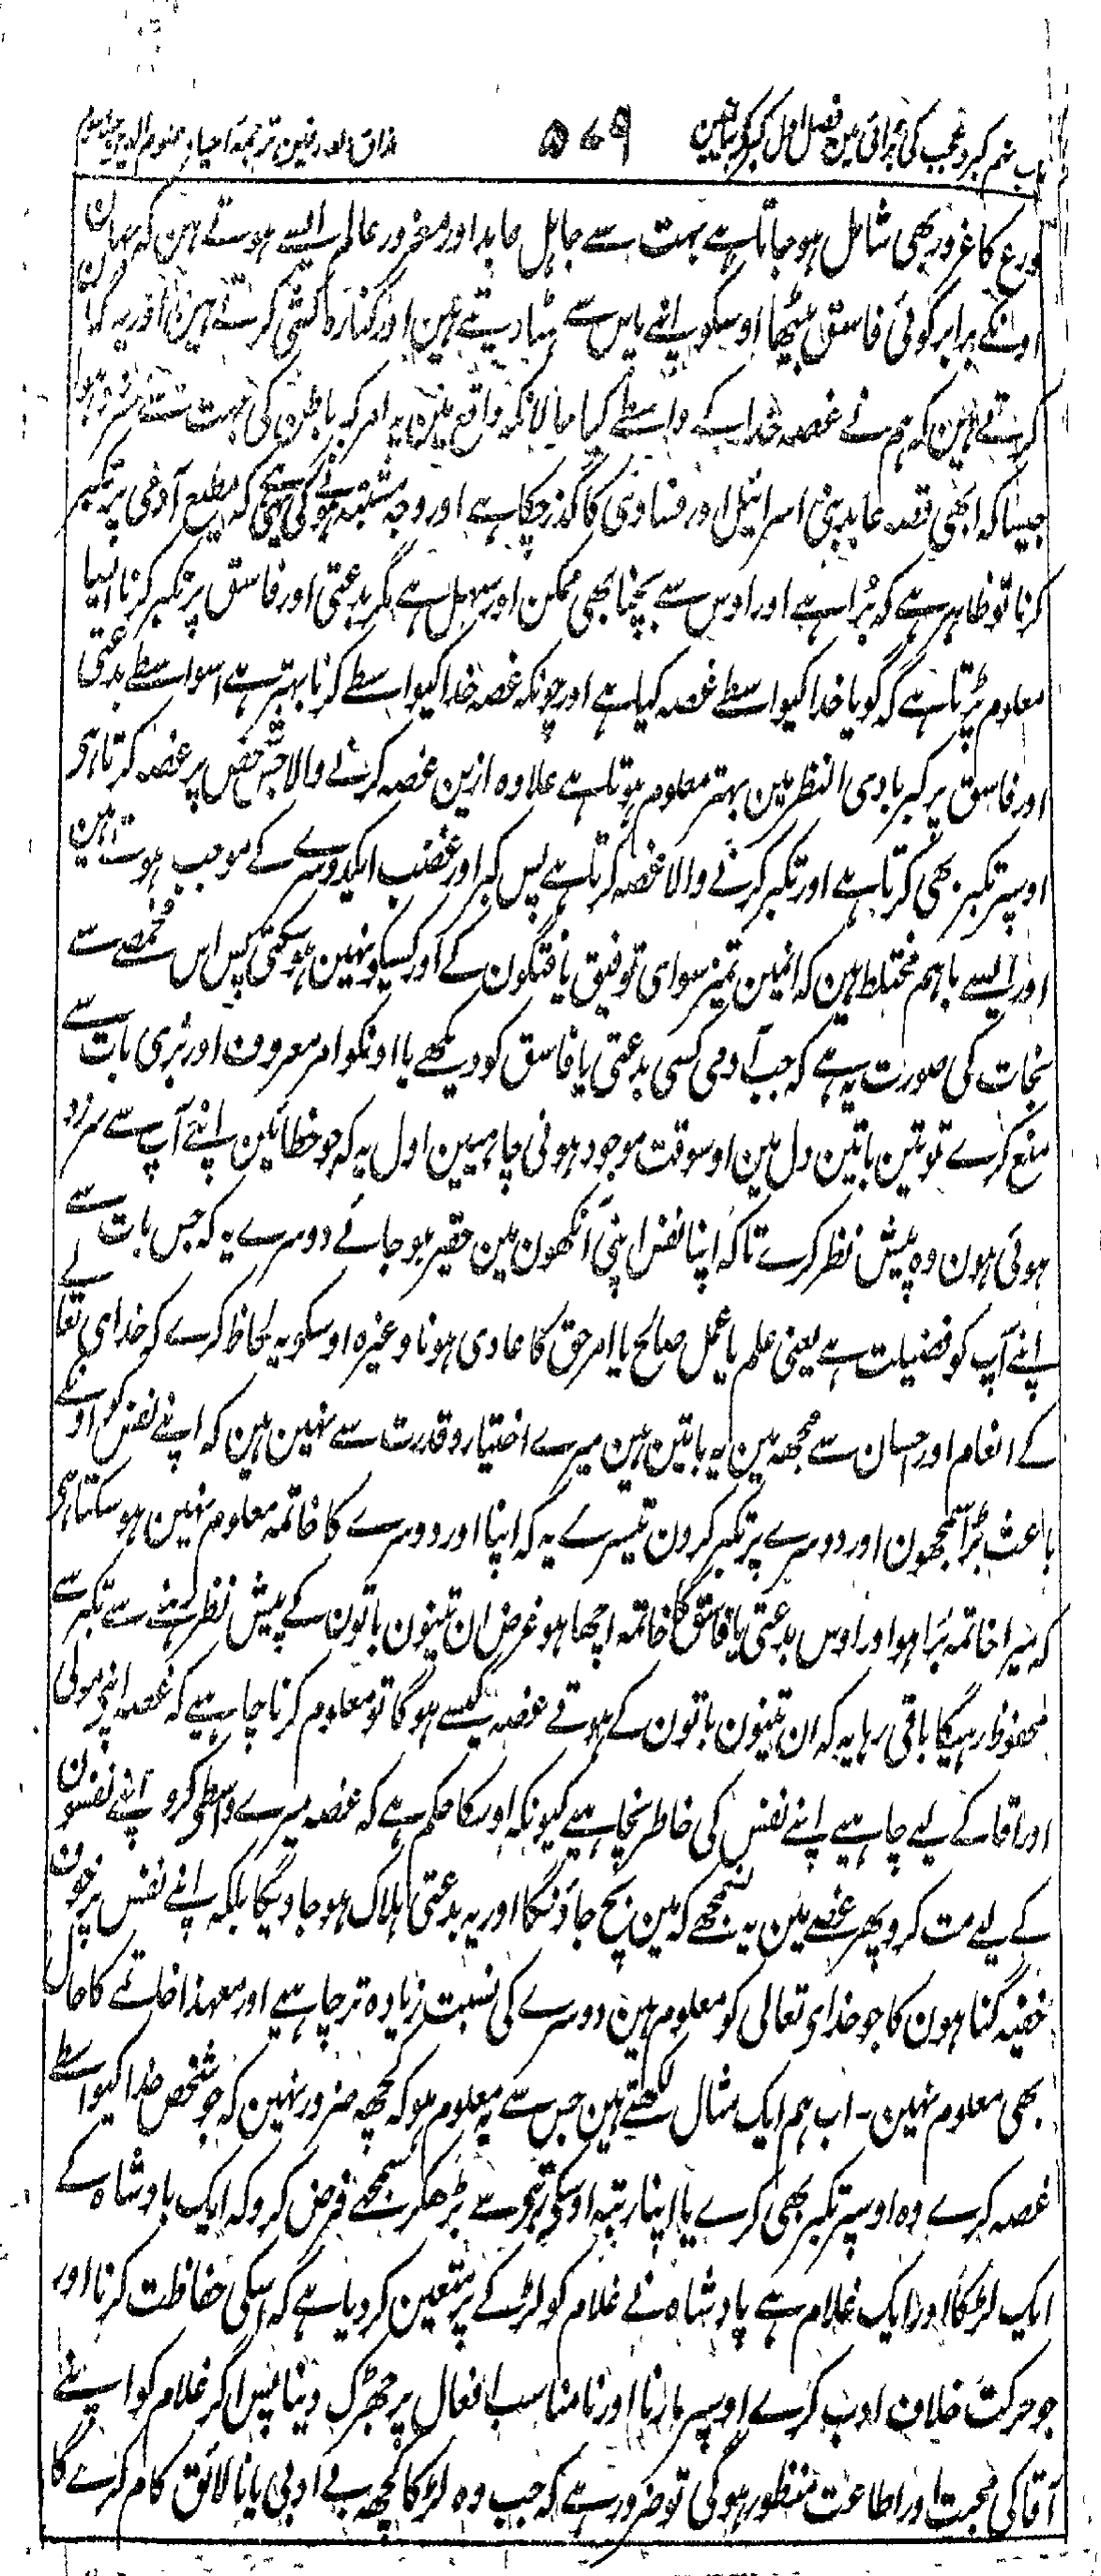 باب نہم کبر و عجب کی برائی مین فصل اول کبر کے بیان مین ۵۷۹ مذاق العارفین ترجمہ احیاء علوم الدین جلد سوم
ورع کا غرور بھی شامل ہو جاتا ہے بہت سے جاہل عابد اور مغرور عالم ایسے ہوتے ہین کہ جہان
اونکے برابر کوئی فاسق بیٹھا اوسکو اپنے پاس سے ہٹا دیتے ہین اور کنارہ کشی کرتے ہین اور یہ گمان
کرتے ہین کہ ہم نے غصہ خدا کے واسطے کیا حالانکہ واقع مین یہ امر کبر باطن کی جہت سے سرزد ہوا
جیسا کہ ابھی قصہ عابد بنی اسرائیل اور فسادی کا گذر چکا ہے اور وجہ مشتبہ ہونے کی یہ ہے کہ مطیع آدمی پر تکبر
کرنا تو ظاہر ہے کہ برا ہے اور اوس سے بچنا بھی ممکن اور سہل ہے مگر بدعتی اور فاسق پر تکبر کرنا ایسا
معلوم پڑتا ہے کہ گویا خدا کیواسطے غصہ کیا ہے اور چونکہ غصہ خدا کیواسطے کرنا بہتر ہے اسواسطے بدعتی
اور فاسق پر کبر بادی النظر مین بہتر معلوم ہوتا ہے علاوہ ازین غصہ کرنے والا جس شخص پر غصہ کرتا ہی
اوسپر تکبر بھی کرتا ہے اور تکبر کرنے والا غصہ کرتا ہے پس کبر اور غضب ایکدوسرے کے موجب ہوتے ہین
اور ایسے باہم مختلط ہین کہ انمین تمیز سوای توفیق یافتگون کے اور کسیکو نہین ہو سکتی پس اس مخمصے سے
نجات کی صورت یہ ہے کہ جب آدمی کسی بدعتی یا فاسق کو دیکھے یا اونکو امر معروف اور بری بات سے
منع کرے تو تین باتین دل مین اوسوقت موجود ہونی چاہیین اول یہ کہ جو خطائین اپنے آپ سے سرزد
ہوئی ہون وہ پیش نظر کرے تاکہ اپنا نفس اپنی آنکھون مین حقیر ہو جائے دوسرے یہ کہ جس بات سے
اپنے آپ کو فضیلت ہے یعنی علم یا عمل صالح یا امر حق کا عادی ہونا وغیرہ اوسکو یہ لحاظ کرے کہ خدای تعالے
کے انعام اور احسان سے مجھ مین یہ باتین ہین میرے اختیار و قدرت سے نہین ہین کہ اپنے نفس کو اونکے
باعث بڑا سمجھون اور دوسرے پر تکبر کرون تیسرے یہ کہ اپنا اور دوسرے کا خاتمہ معلوم نہین ہو سکتا ہی
کہ میرا خاتمہ برا ہو اور اوس بدعتی یا فاسق کا خاتمہ اچھا ہو غرض ان تینون باتون کے پیش نظر رہنے سے تکبر سے
محفوظ رہیگا باقی رہا یہ کہ ان تینون باتون کے ہوتے غصہ کیسے ہوگا تو معلوم کرنا چاہیے کہ غصہ اپنے مولی
اور آقا کے لیے چاہیے اپنے نفس کی خاطر نچاہیے کیونکہ اوسکا حکم ہے کہ غصہ میرے واسطے کرو اپنے نفسون
کے لیے مت کرو پھر غصے مین یہ نسمجھے کہ مین بچ جاؤنگا اور یہ بدعتی ہلاک ہو جاویگا بلکہ اپنے نفس پر خوف
خفیہ گناہون کا جو خدای تعالی کو معلوم ہین دوسرے کی نسبت زیادہ تر چاہیے اور معہذا خاتمے کا حال
بھی معلوم نہین۔ اب ہم ایک مثال لکھتے ہین جس سے یہ معلوم ہو کہ کچھ ضرور نہین کہ جو شخص خدا کیواسطے
غصہ کرے وہ اوسپر تکبر بھی کرے یا اپنا رتبہ اوسکے رتبے سے بڑھکر سمجھے فرض کرو کہ ایک بادشاہ کے
ایک لڑکا اور ایک غلام ہے بادشاہ نے غلام کو لڑکے پر متعین کر دیا ہے کہ اسکی حفاظت کرنا اور
جو حرکت خلاف ادب کرے اوسپر مارنا اور نامناسب افعال پر جھڑک دینا پس اگر غلام کو اپنے
آقا کی محبت اور اطاعت منظور ہوگی تو ضرور ہے کہ جب وہ لڑکا کچھ بے ادبی یا نالائق کام کرے گا